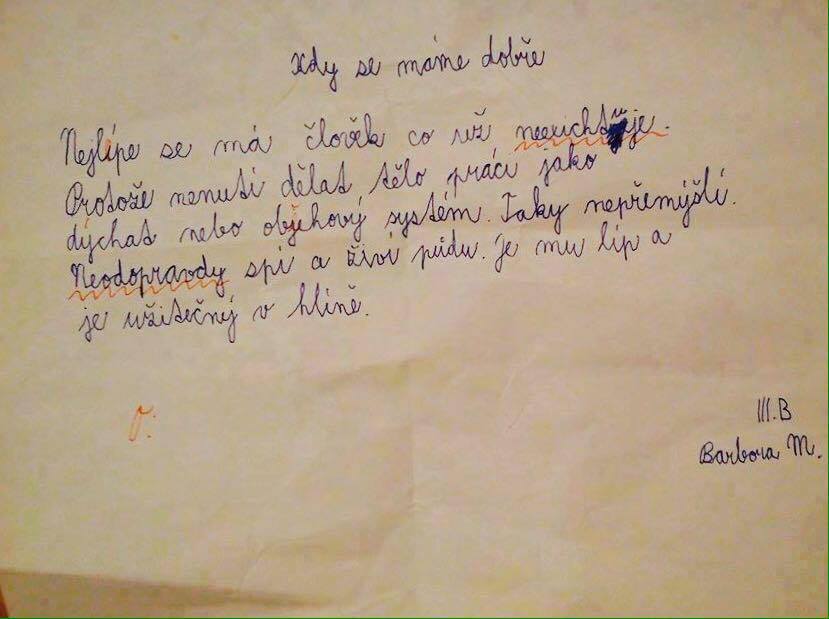 Kdy se máme dobře
Nejlípe se má člověk co už neexichtuje.
Protože nenutí dělat tělo práci jako
dýchat nebo objehový systém. Taky nepřemýšlí.
Neodopravdy spí a živí půdu. Je mu líp a
je užitečný v hlíně.
III.B
Barbora M.